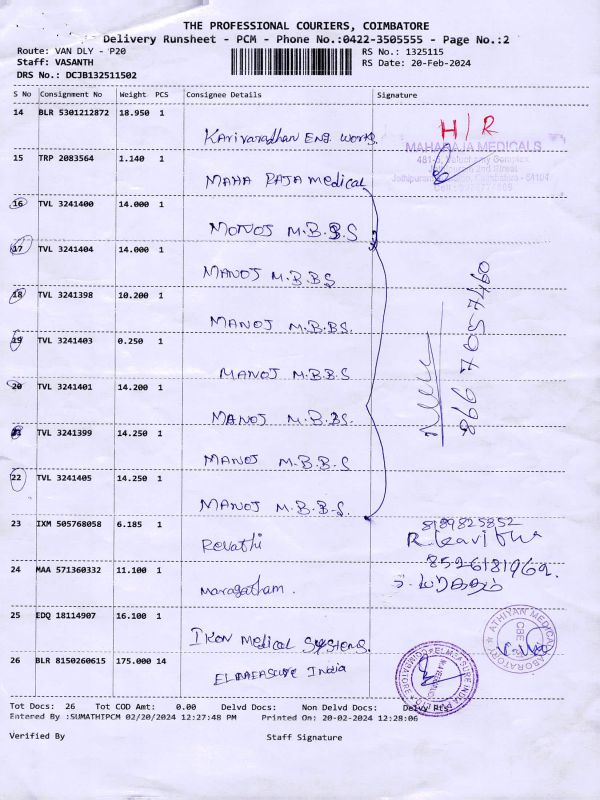 THE PROFESSIONAL COURIERS, COIMBATORE
Delivery Runsheet - PCM - Phone No.:0422-3505555 - Page No.:2
Route: VAN DLY - P20 RS No.: 1325115
Staff: VASANTH RS Date: 20-Feb-2024
DRS No.: DCJB132511502
S No Consignment No Weight PCS Consignee Details Signature
14 BLR 5301212872 18.950 1 Karivaradhan Eng. Works. H/R
MAHARAJA MEDICALS
15 TRP 2083564 1.140 1 MAHA RAJA medical
16 TVL 3241400 14.000 1 MONOJ M.B.B.S
17 TVL 3241404 14.000 1 MANOJ M.B.BS
18 TVL 3241398 10.200 1 MANOJ M.B.BS.
19 TVL 3241403 0.250 1 MANOJ M.B.B.S
866 7057460
20 TVL 3241401 14.200 1 MANOJ M.B.BS.
21 TVL 3241399 14.250 1 MANOJ M.B.B.S
22 TVL 3241405 14.250 1 MANOJ M.B.B.S.
23 IXM 505768058 6.185 1 Revathi 8189825852
R. Kavitha
24 MAA 571360332 11.100 1 maragatham. 8526181969.
25 EDQ 18114907 16.100 1 IKON medical Systems.
ATHIYAN MEDICAL LABORATORY CBE
26 BLR 8150260615 175.000 14 ELMEASURE India
ELMEASURE INDIA
Tot Docs: 26 Tot COD Amt: 0.00 Delvd Docs: Non Delvd Docs: Delvy Pts:
Entered By :SUMATHIPCM 02/20/2024 12:27:48 PM Printed On: 20-02-2024 12:28:06
Verified By Staff Signature